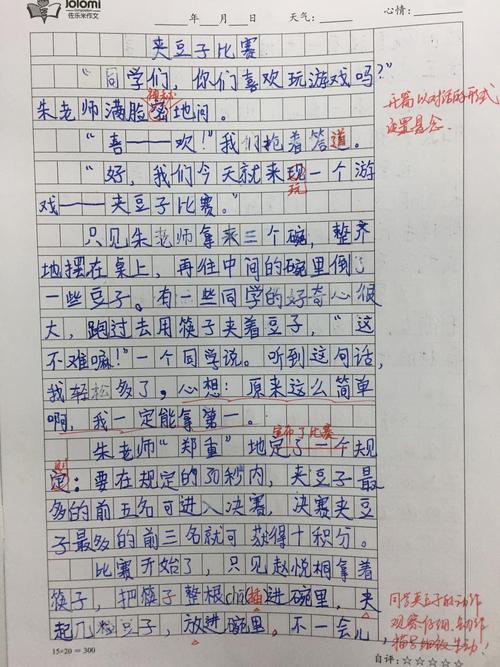 Jolomi
佐乐米作文
年 月 日 天气: 心情:
夹豆子比赛
"同学们,你们喜欢玩游戏吗?"
朱老师满脸密地问。
"喜——欢!"我们抢着答道。
"好,我们今天就来现一个游
玩
戏——夹豆子比赛。"
只见朱老师拿来三个碗,整齐
地摆在桌上,再往中间的碗里倒了
一些豆子。有一些同学的好奇心很
大,跑过去用筷子夹着豆子,"这
不难嘛!"一个同学说。听到这句话,
我轻松多了,心想:原来这么简单
啊,我一定能拿第一。
宣布了比赛
朱老师"郑重"地定了一个规
则
定:要在规定的30秒内,夹豆子最
多的前五名可进入决赛,决赛夹豆
子最多的前三名就可获得十积分。
比赛开始了,只见赵悦桐拿着
筷子,把筷子整根chā插进碗里,夹
起几粒豆子,放进碗里。不一会儿
开篇以对话的形式
设置悬念.
同学夹豆子的动作
观察仔细,
15×20=300
自评:☆☆☆☆☆